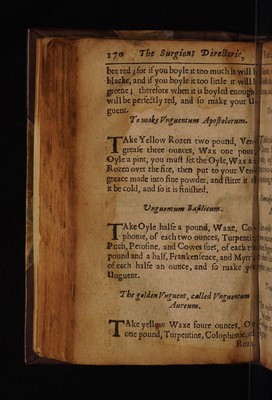 170 The Surgions Directorie,
bee red; for if you boyle it too much is will
blacke, and if you boyle it too little it will
greene; therefore when it is boyled enough
will be perfectly red, and so make your
guent.
To make Vnguentum Apostolorum.
TAke Yellow Rozen two pound,
grease three ounces, Wax one
Oyle a pint, you must set the Oyle, Wax
Rozen over the fire, then put to your
greace made into fine powder, and stirre it
it be cold, and so it is finished.
Unguentum Basilicum.
TAke Oyle halfe a pound, Waxe,
phonie, of each two ounces,
Pitch, Perosine, and Cowes suet, of each
pound and a half, Frankensence, and
of each halfe an ounce, and so make
Unguent.
The golden Unguent, called Vnguentum
Aureum.
TAke yellow Waxe foure ounces,
one pound, Turpentine, Colophonie,